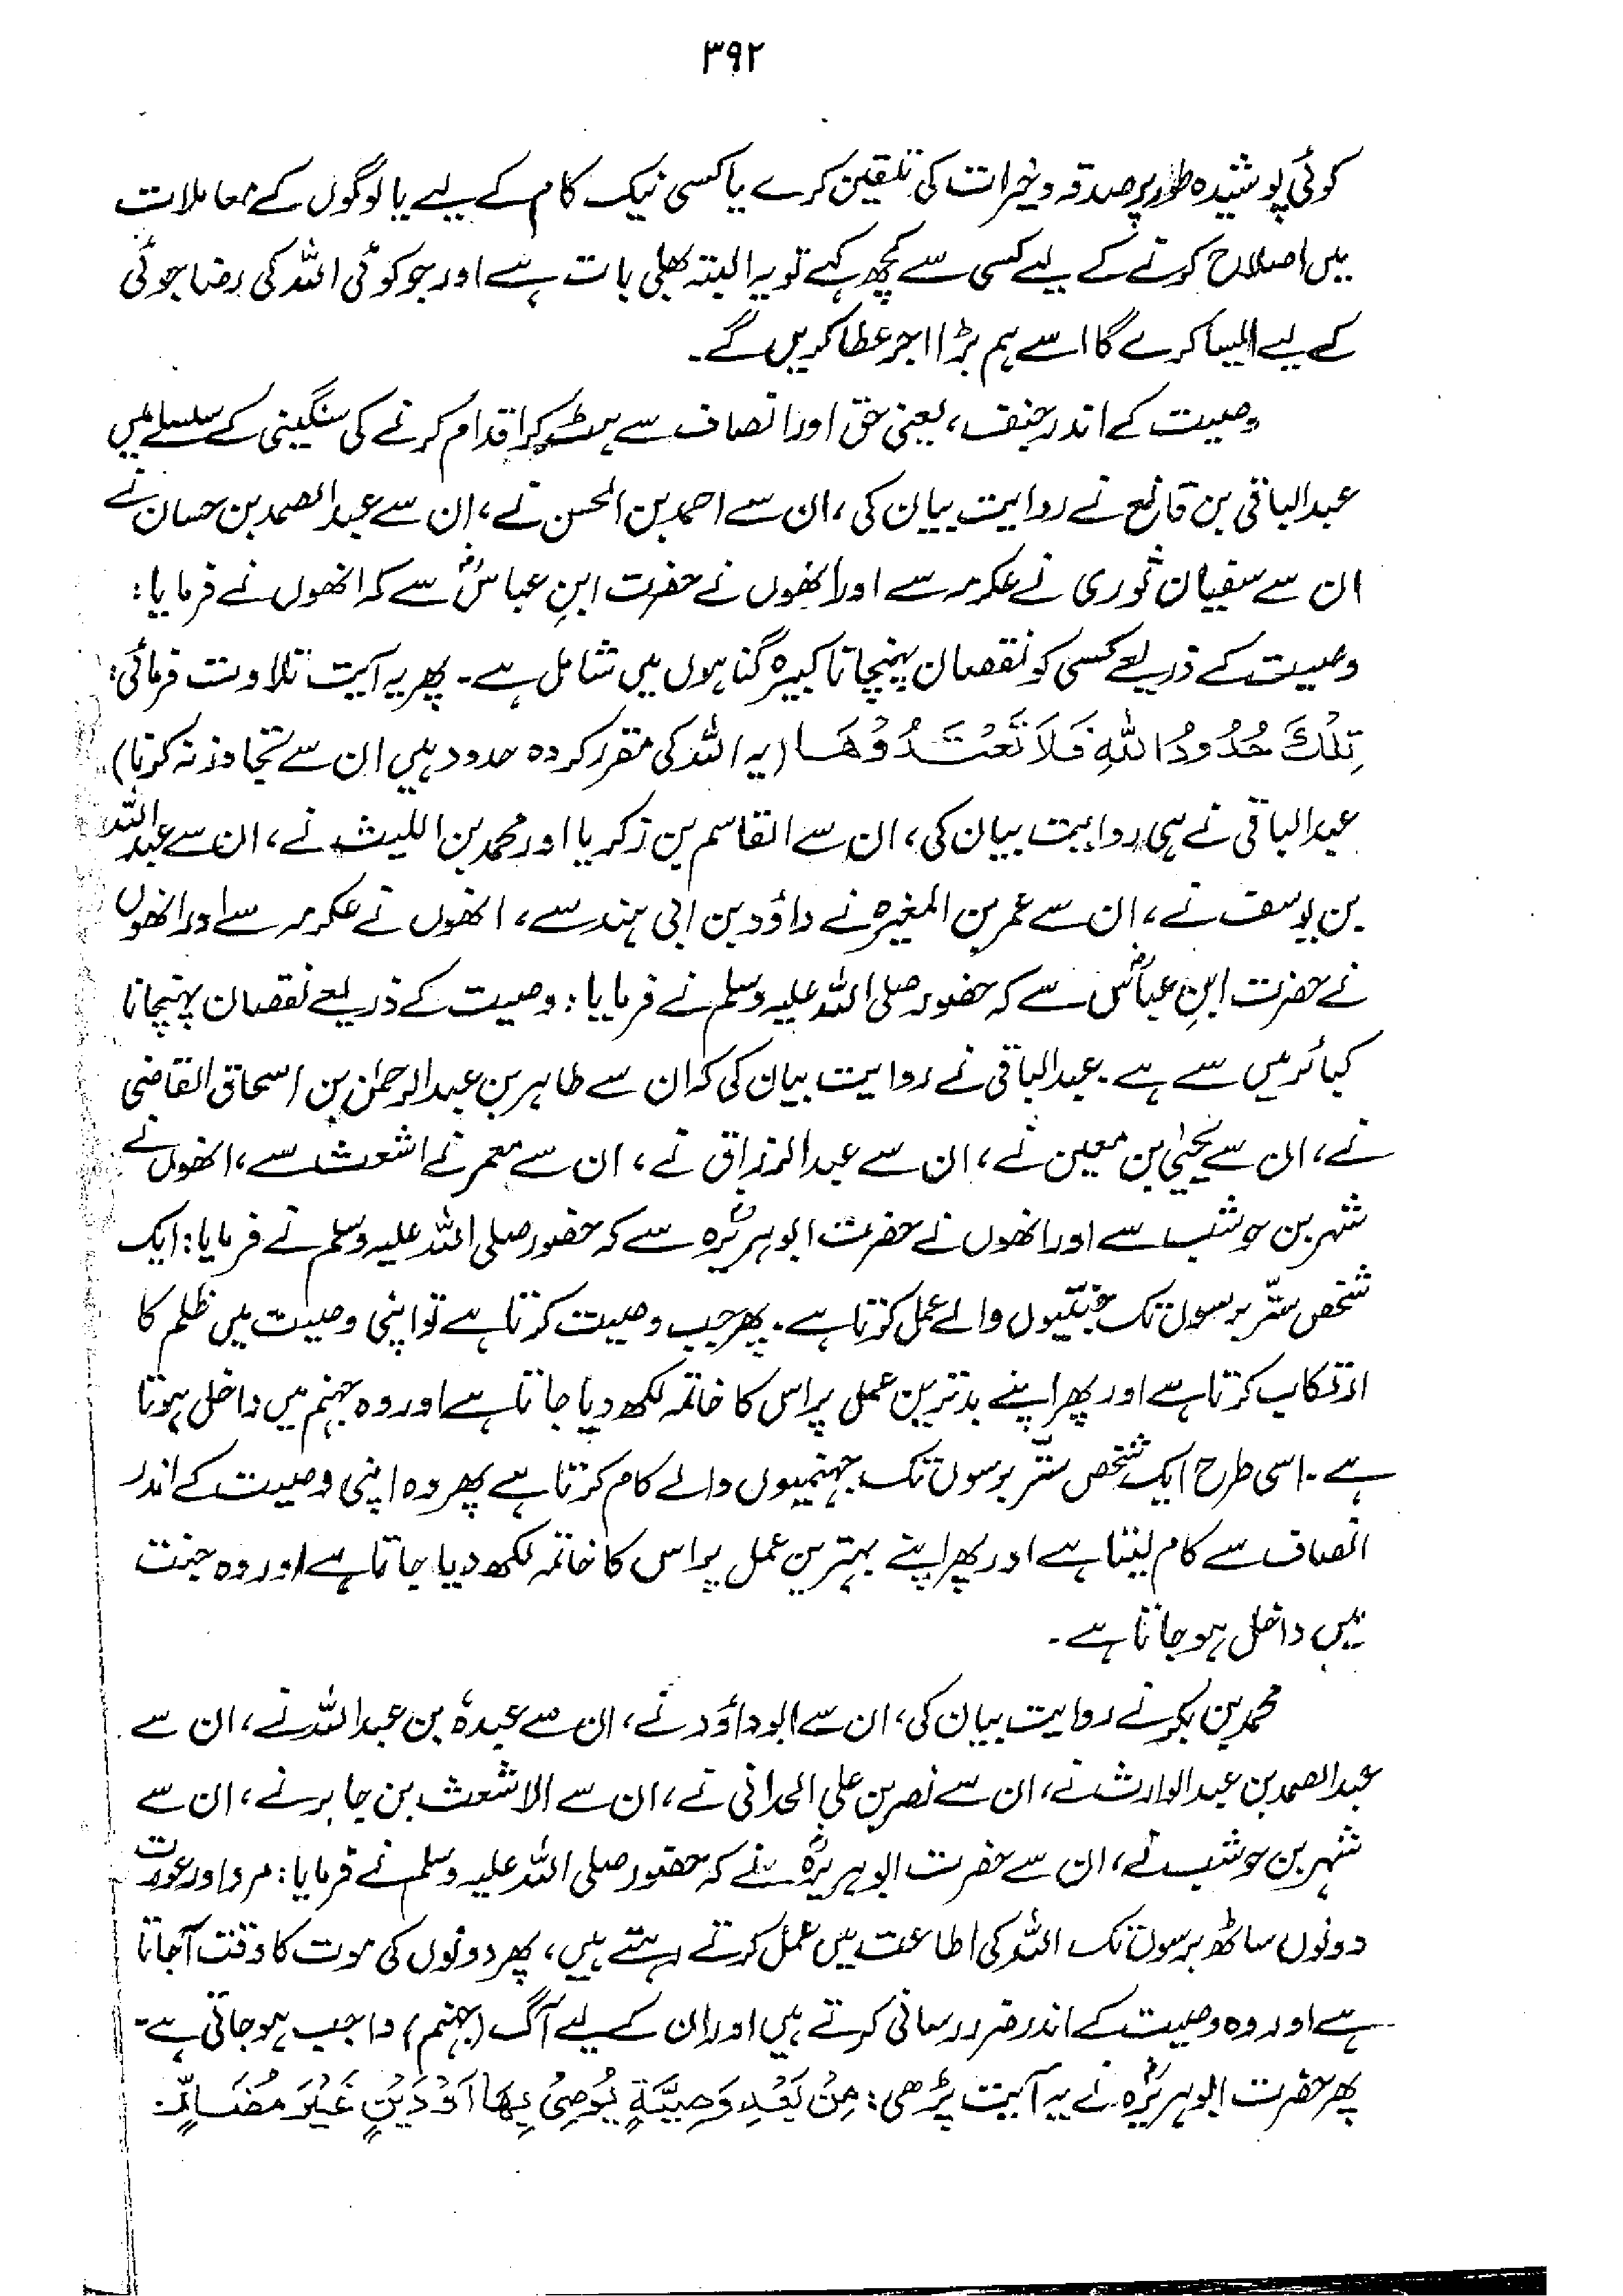 ۳۹۲
کوئی پوشیدہ طور پر صدقہ و خیرات کی تلقین کرے یا کسی نیک کام کے لیے یا لوگوں کے معاملات
میں اصلاح کرنے کے لیے کسی سے کچھ کہے تو یہ البتہ بھلی بات ہے اور جو کوئی اللہ کی رضا جوئی
کے لیے ایسا کرے گا اسے ہم بڑا اجر عطا کریں گے۔
وصیت کے اندر جنف، یعنی حق اور انصاف سے ہٹ کر اقدام کرنے کی سنگینی کے سلسلے میں
عبدالباقی بن قانع نے روایت بیان کی، ان سے احمد بن الحسن نے، ان سے عبدالصمد بن حسان نے
ان سے سفیان ثوری نے عکرمہ سے اور انھوں نے حضرت ابنِ عباسؓ سے کہ انھوں نے فرمایا:
وصیت کے ذریعے کسی کو نقصان پہنچانا کبیرہ گناہوں میں شامل ہے۔ پھر یہ آیت تلاوت فرمائی:
تِلْكَ حُدُوْدُ اللّٰهِ فَلَا تَعْتَدُوْهَا (یہ اللہ کی مقرر کردہ حدود ہیں ان سے تجاوز نہ کرنا)
عبدالباقی نے ہی روایت بیان کی، ان سے القاسم بن زکریا اور محمد بن اللیث نے، ان سے عبداللہ
بن یوسف نے، ان سے عمر بن المغیرہ نے داؤد بن ابی ہند سے، انھوں نے عکرمہ سے اور انھوں
نے حضرت ابنِ عباسؓ سے کہ حضور صلی اللہ علیہ وسلم نے فرمایا: وصیت کے ذریعے نقصان پہنچانا
کبائر میں سے ہے۔ عبدالباقی نے روایت بیان کی کہ ان سے طاہر بن عبدالرحمٰن بن اسحاق القاضی
نے، ان سے یحییٰ بن معین نے، ان سے عبدالرزاق نے، ان سے معمر نے اشعث سے، انھوں نے
شہر بن حوشب سے اور انھوں نے حضرت ابوہریرہؓ سے کہ حضور صلی اللہ علیہ وسلم نے فرمایا: ایک
شخص ستّر برسوں تک جنتیوں والے عمل کرتا ہے۔ پھر جب وصیت کرتا ہے تو اپنی وصیت میں ظلم کا
ارتکاب کرتا ہے اور پھر اپنے بدترین عمل پر اس کا خاتمہ لکھ دیا جاتا ہے اور وہ جہنم میں داخل ہوتا
ہے۔ اسی طرح ایک شخص ستّر برسوں تک جہنمیوں والے کام کرتا ہے پھر وہ اپنی وصیت کے اندر
انصاف سے کام لیتا ہے اور پھر اپنے بہترین عمل پر اس کا خاتمہ لکھ دیا جاتا ہے اور وہ جنت
میں داخل ہو جاتا ہے۔
محمد بن بکر نے روایت بیان کی، ان سے ابوداؤد نے، ان سے عبدہ بن عبداللہ نے، ان سے
عبدالصمد بن عبدالوارث نے، ان سے نصر بن علی الحدانی نے، ان سے الاشعث بن جابر نے، ان سے
شہر بن حوشب نے، ان سے حضرت ابوہریرہؓ نے کہ حضور صلی اللہ علیہ وسلم نے فرمایا: مرد اور عورت
دونوں ساٹھ برسوں تک اللہ کی اطاعت میں عمل کرتے رہتے ہیں، پھر دونوں کی موت کا وقت آجاتا
ہے اور وہ وصیت کے اندر ضرر رسانی کرتے ہیں اور ان کے لیے آگ (جہنم) واجب ہو جاتی ہے۔
پھر حضرت ابوہریرہؓ نے یہ آیت پڑھی: مِنْۢ بَعْدِ وَصِيَّةٍ يُّوْصٰى بِهَا اَوْ دَيْنٍ غَيْرَ مُضَارٍّ۔